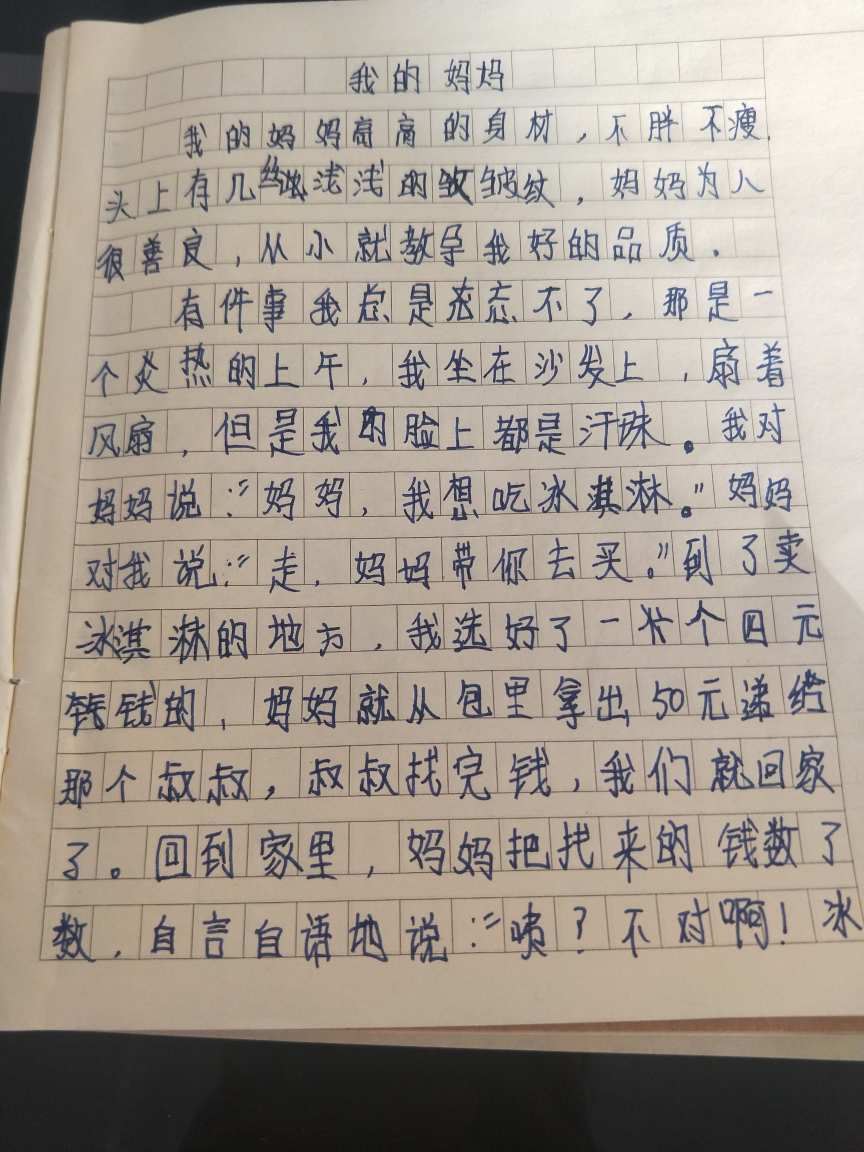 我的妈妈
我的妈妈高高的身材，不胖不瘦，
头上有几丝浅浅的皱纹，妈妈为人
很善良，从小就教导我好的品质．
有件事我总是忘不了，那是一
个炎热的上午，我坐在沙发上，扇着
风扇，但是我的脸上都是汗珠。我对
妈妈说：“妈妈，我想吃冰淇淋。”妈妈
对我说：“走，妈妈带你去买。”到了卖
冰淇淋的地方，我选好了一个四元
钱的，妈妈就从包里拿出50元递给
那个叔叔，叔叔找完钱，我们就回家
了。回到家里，妈妈把找来的钱数了
数，自言自语地说：“啧？不对啊！冰